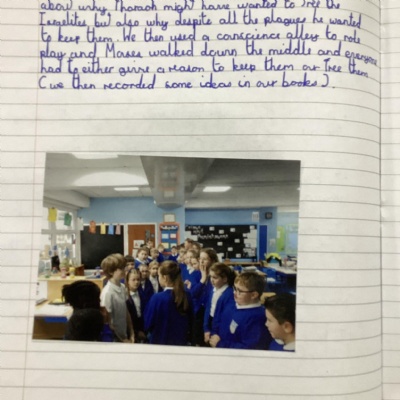 about why Pharoah might have wanted to free the
Israelites but also why despite all the plagues he wanted
to keep them. We then used a conscience alley to role
play and Moses walked down the middle and everyone
had to either give a reason to keep them our free them
(we then recorded some ideas in our books).